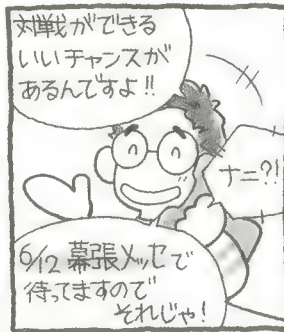 対戦ができる
いいチャンスが
あるんですよ!!
ナニ?!
6/12 幕張メッセで
待ってますので
それじゃ!